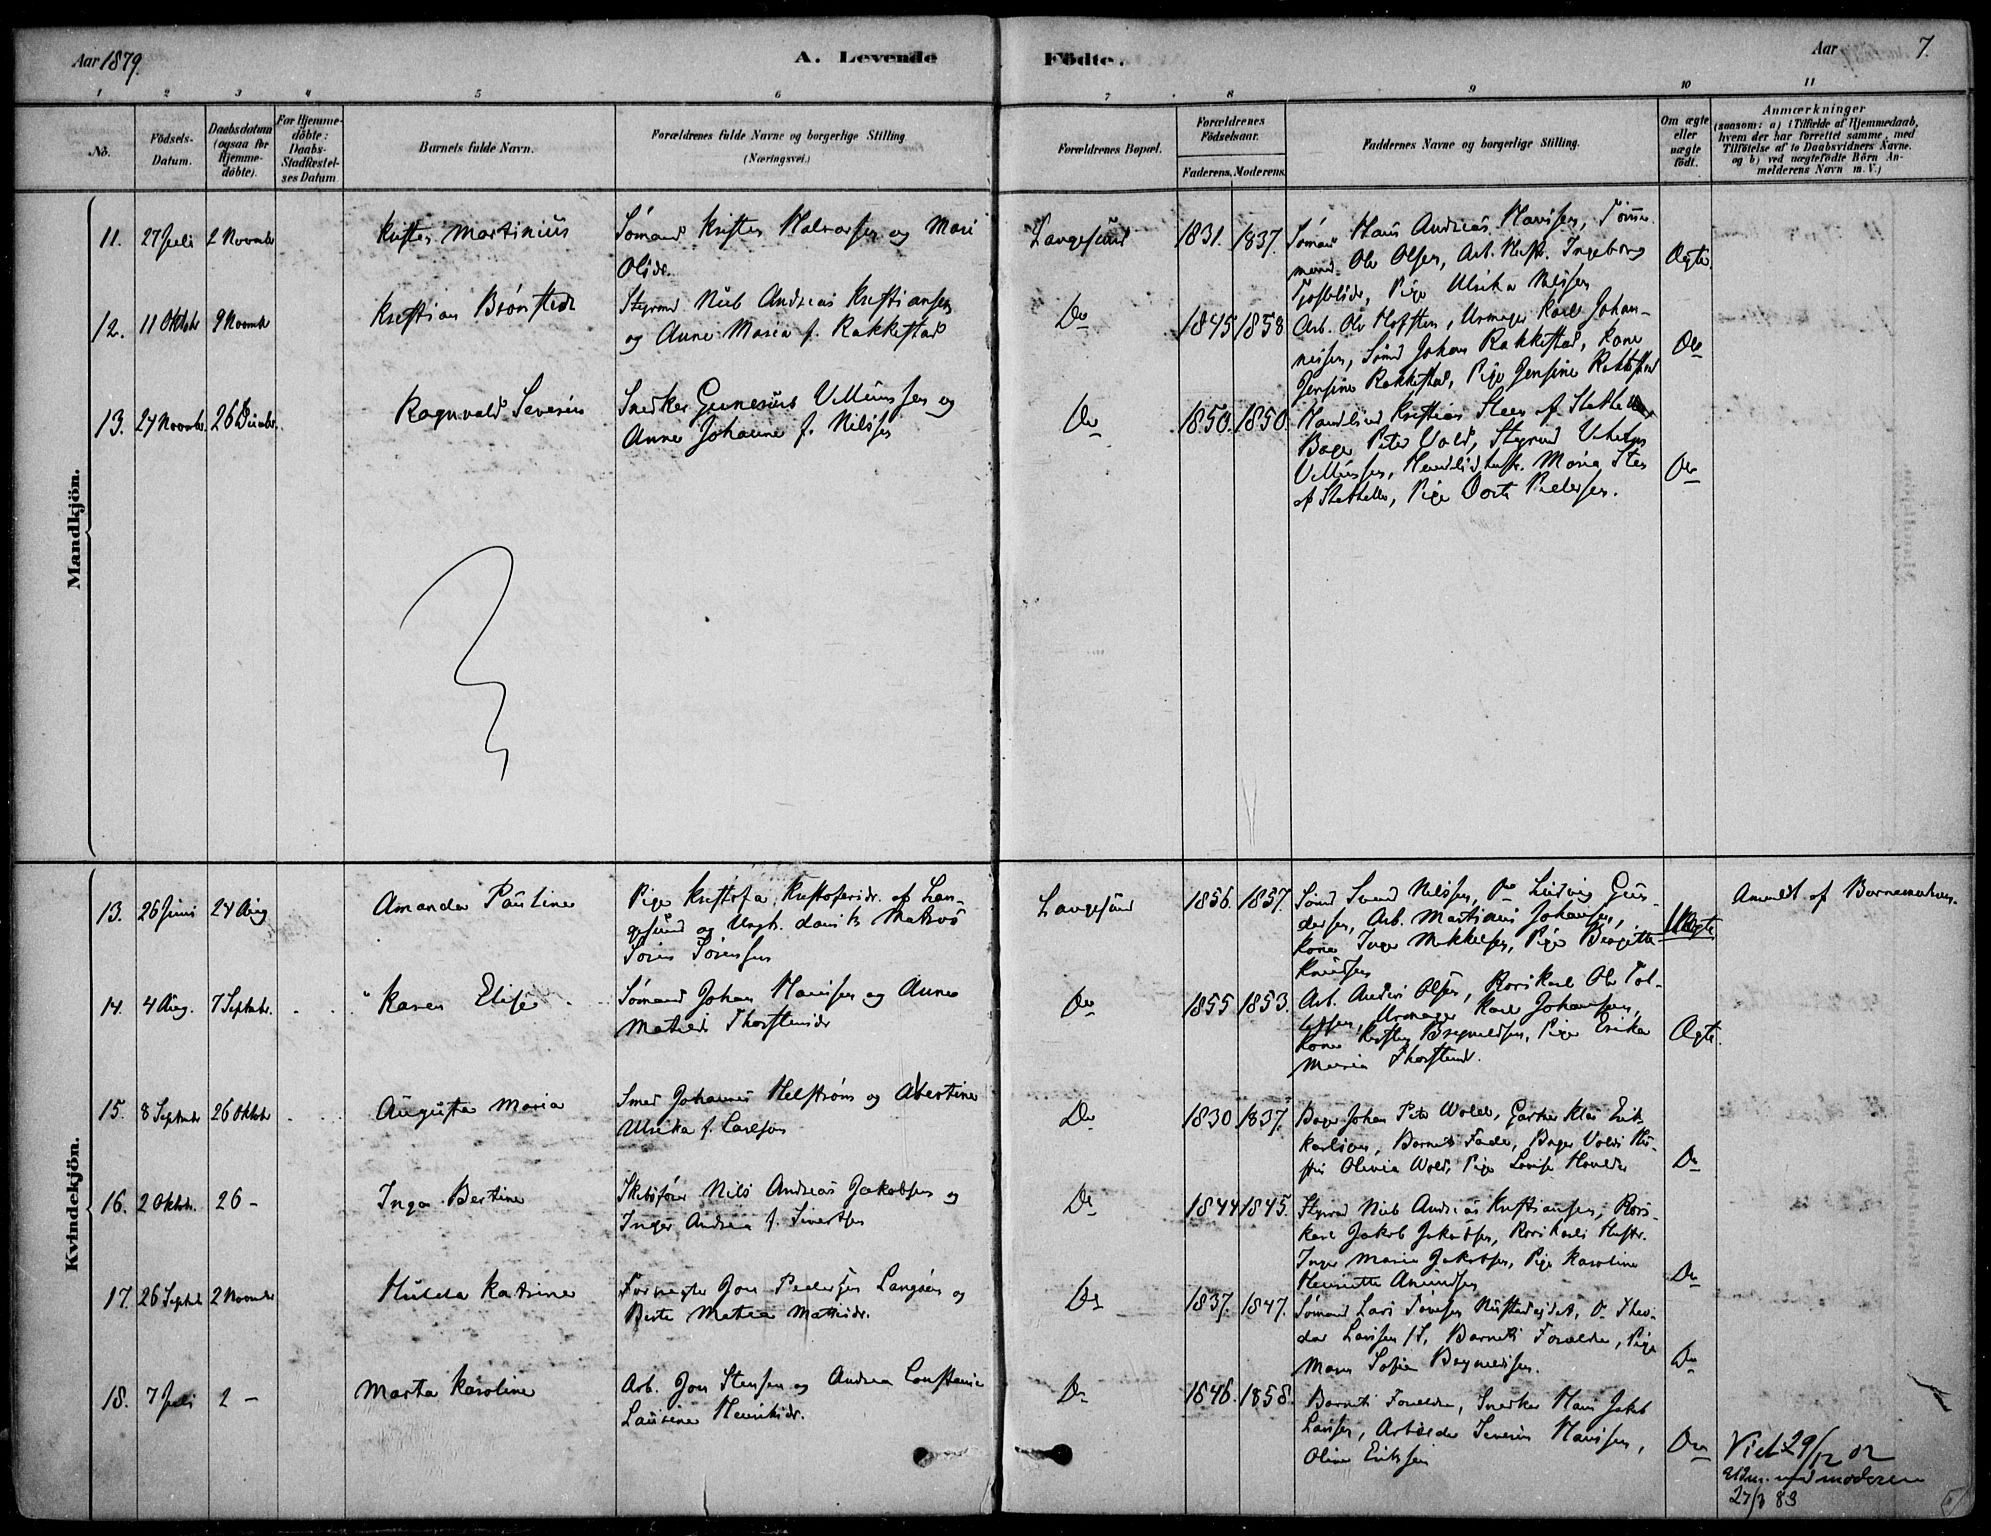 Aar 1879.
A. Levende
Födte.
Aar
7.
1 2 3 4 5 6 7 8 9 10 11
No.
Födsels-
Datum.
Daabsdatum
(ogsaa for
Hjemme-
döbte).
For Hjemme-
döbte:
Daabs-
Stadfæstel-
ses Datum
Barnets fulde Navn.
Forældrenes fulde Navne og borgerlige Stilling
(Næringsvei.)
Forældrenes Bopæl.
Forældrenes
Födselsaar.
Faderens. Moderens.
Faddernes Navne og borgerlige Stilling.
Om ægte
eller
uægte
födt.
Anmærkninger
(saasom: a) i Tilfælde af Hjemmedaab,
hvem der har forrettet samme, med
Tilföielse af to Daabsvidners Navne.
og b) ved uægtefödte Börn An-
melderens Navn m. V.)
Mandkjön.
11. 27 Juli 2 Novmbr
Krister Martinius
Sömand Krister Halvorsen og Mari
Olsdr.
Langesund
1831. 1837.
Sömand Hans Andreas Hansen, Tömmer-
mand Ole Olsen, Arb. Hustr. Ingeborg
Pige Ulrika Nilsen
Ægte.
12. 11 Oktbr 9 Novmbr
Kristian Brönsted
Styrmd Nils Andreas Kristiansen
og Anne Maria f. Rakkestad
Do
1845 1858
Arb. Ole Hofsten, Urmager Karl Johan-
nesen, Sömd Johan Rakkestad, Kone
Jensine Rakkestad, Pige Jensine Rakkestad
Do
13. 24 Novmbr. 26 Dcmbr.
Ragnvald Severin
Snedker Gunerius Villumsen og
Anne Johanne f. Nilsen
Do
1850. 1850.
Handlsmd Kristian Steen af Stathelle
Bager Peter Wold, Styrmd Vilhelm
Villumsen, Handlsmd hustr. Maria Steen
af Stathelle, Pige Dorte Pedersen.
Do
Kvindekjön.
13. 26 Juni 24 Aug
Amanda Pauline
Pige Kristofa Kristofersdr. af Lan-
gesund og Ungk. dansk Matros
Sören Sörensen
Langesund
1856. 1857.
Sömd Svend Nilsen, Do Ludvig Gun-
dersen, Arb. Martinius Johansen,
Kone Inger Mikkelsen, Pige Birgitte
Knudsen
Uægte
Anmeldt af Barnemoderen.
14. 4 Aug. 7 Septmbr.
Karen Elise
Sömand Johan Hansen og Anne
Mathea Thorstensdr
Do
1855 1853.
Arb. Anders Olsen, Rorskarl Ole Tol-
lefsen, Urmager Karl Johansen,
Kone Kirsten Brynildsen, Pige Erika
Maria Thorstensdr.
Ægte.
15. 8 Septmbr 26 Oktbr
Augusta Maria
Smed Johannes Helström og Albertine
Ulrika f. Carlson
Do
1830 1837.
Bager Johan Peter Wold, Gartner Klas Erik
Karlson, Barnets Fader, Bager Volds Hu-
stru Olivia Wold, Pige Lovise
Do
16. 2 Oktbr. 26 -
Inga Bertine
Skibsförer Nils Andreas Jakobsen og
Inger Andrea f. Sivertsen
Do
1844 1845.
Styrmd Nils Andreas Kristiansen, Rors-
karl Jakob Jakobsen, Rorskarls Hustr.
Inger Maria Jakobsen, Pige Karoline
Henriette Amundsen
Do
17. 26 Septmbr 2 Novmbr
Hulda Katrine
Jon Pedersen Langöen og
Berte Mathea Mathisdr.
Do
1837. 1847.
Sömand Lars Tovesen Rustadeidet, Do Theo-
dor Larsen, Barnets Forældre, Pige
Maren Sofie Brynildsen.
Do
18. 7 Juli 2 -
Marta Karoline
Arb. Jon Stensen og Andrea Constance
Laurine Henriksdr.
Do
1846. 1858.
Barnets Forældre, Snedker Hans Jakob
Larsen, Arbeider Severin Hansen,
Oline Eriksen
Do
Viet 29/12 02
Udm. med moderen
27/3 83